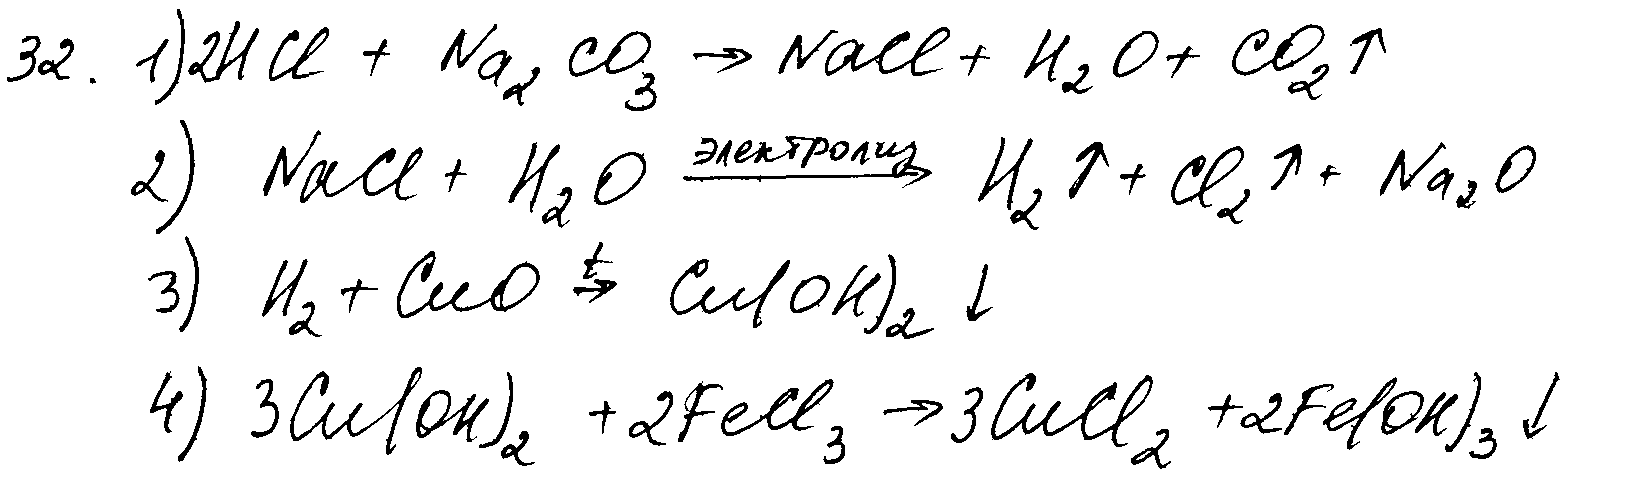 32. 1) 2HCl + Na₂CO₃ → NaCl + H₂O + CO₂↑
2) NaCl + H₂O электролиз→ H₂↑ + Cl₂↑ + Na₂O
3) H₂ + CuO t→ Cu(OH)₂↓
4) 3Cu(OH)₂ + 2FeCl₃ → 3CuCl₂ + 2Fe(OH)₃↓